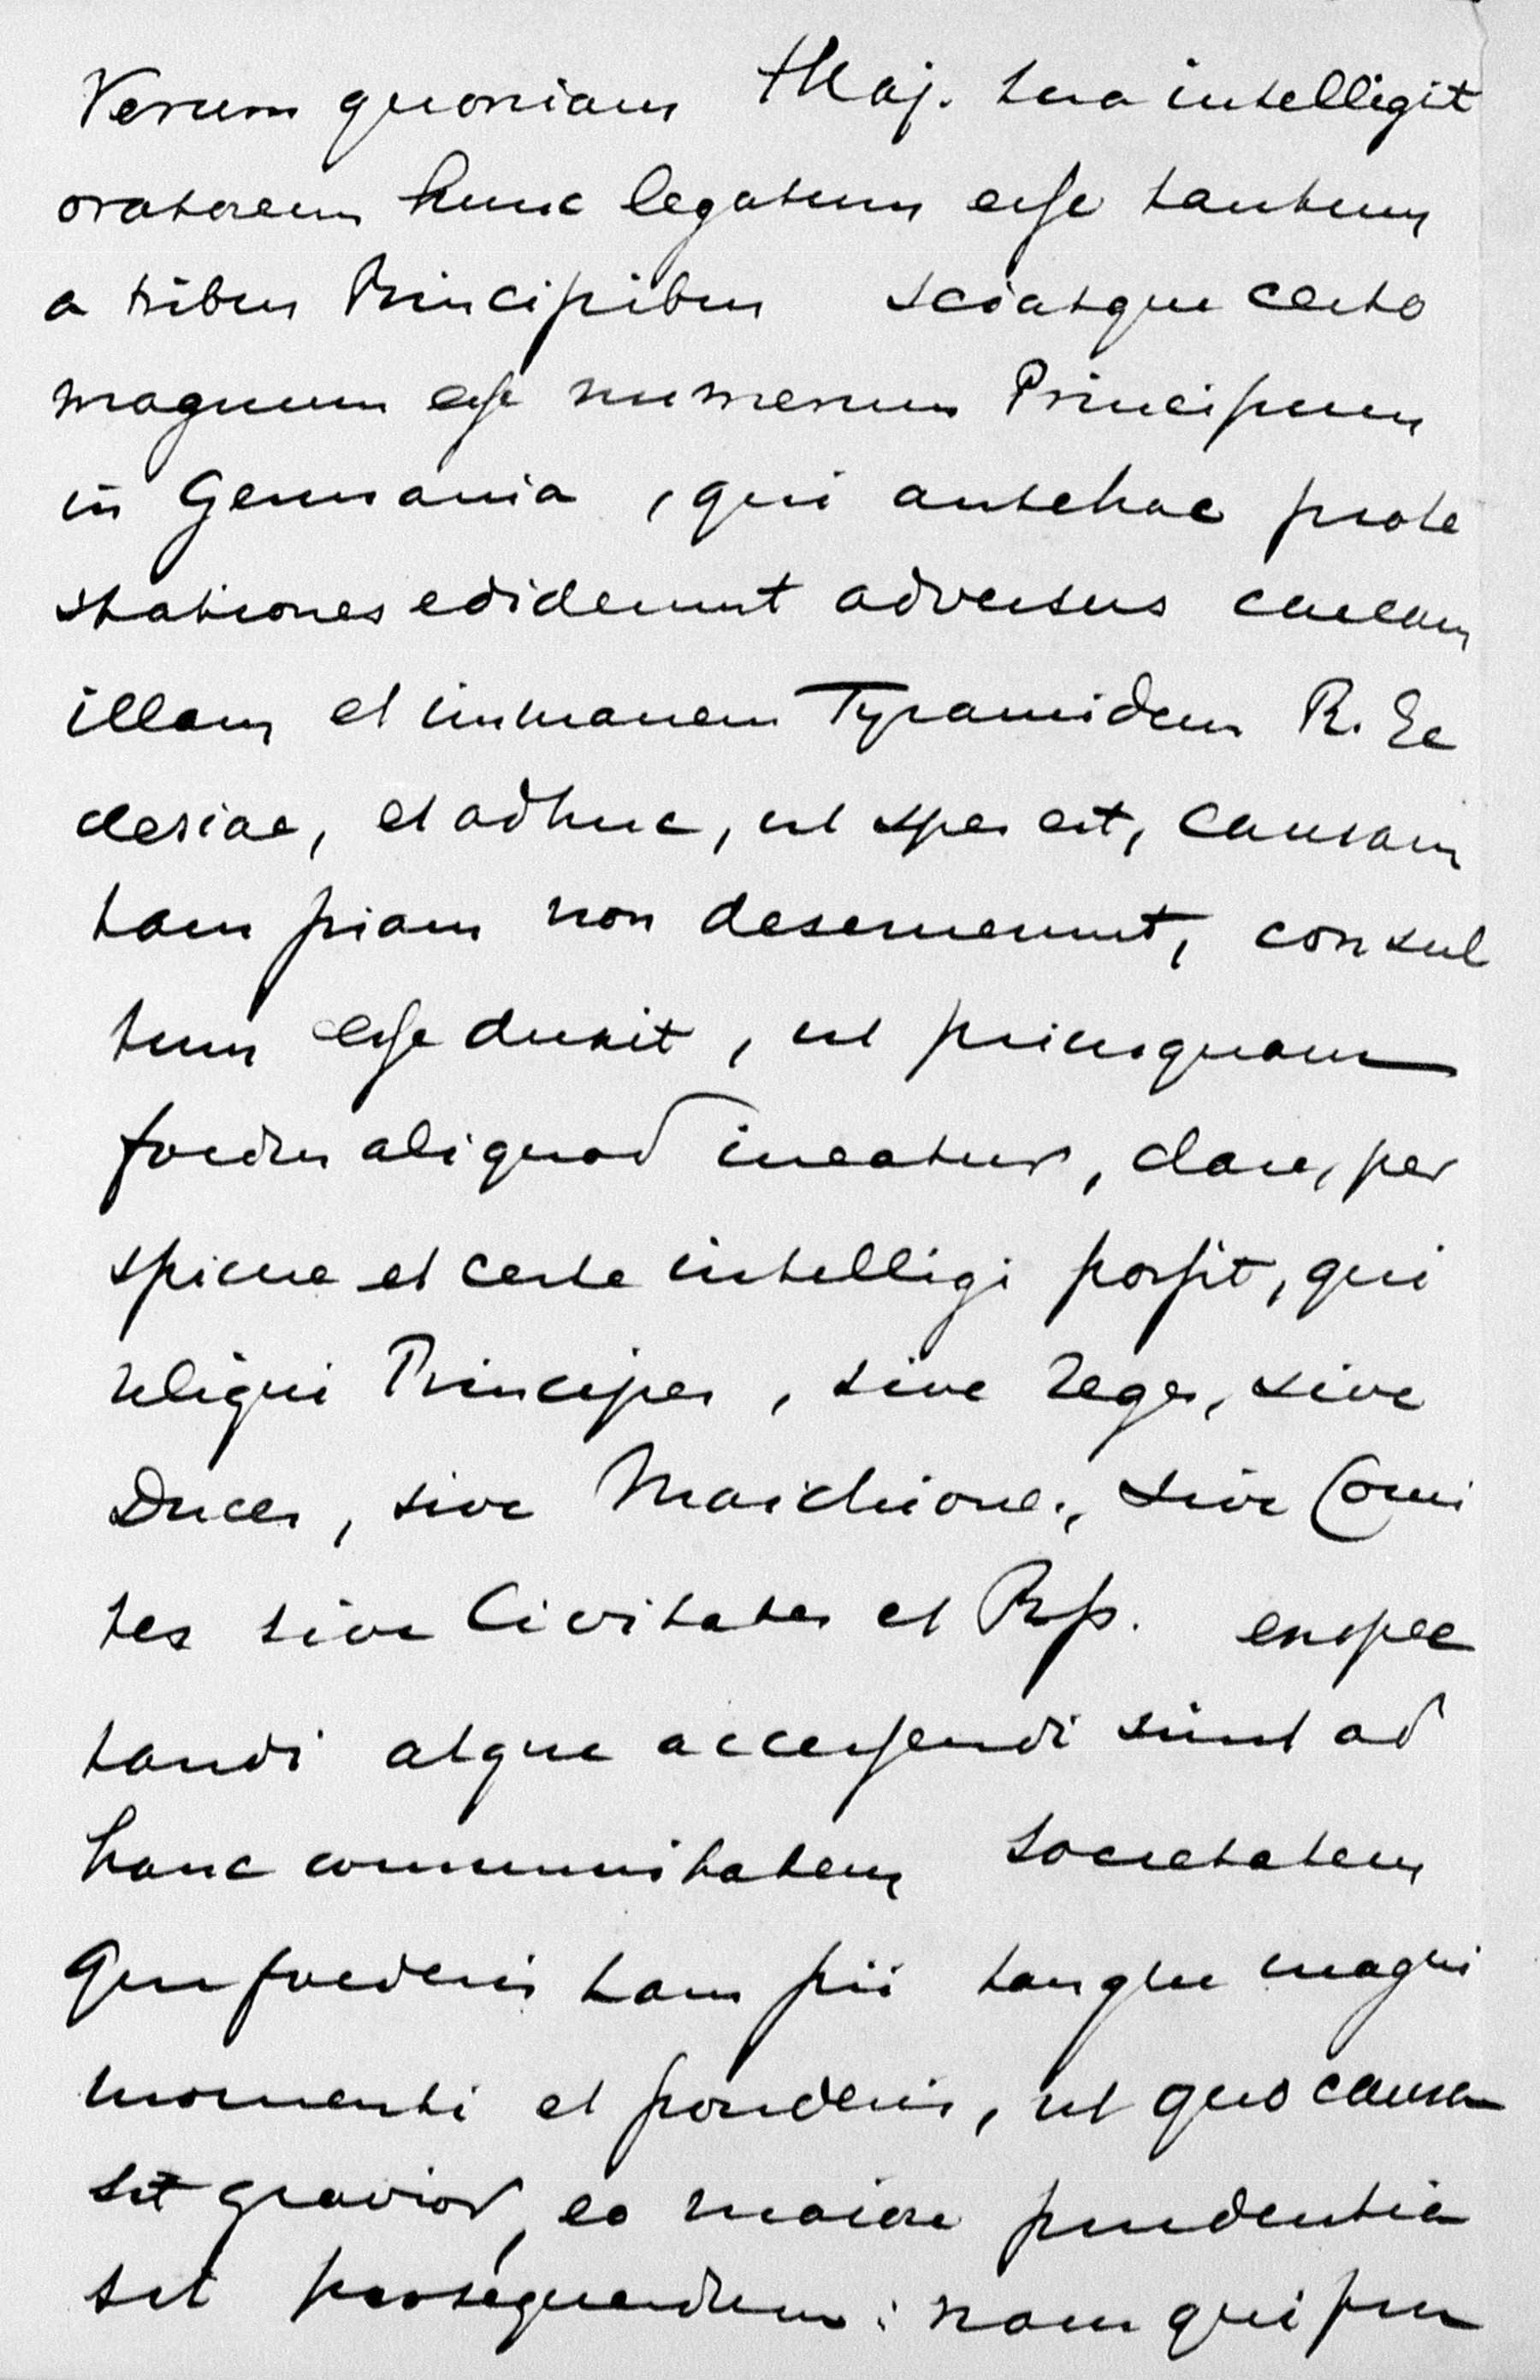 Verum quoniam Maj. tua intelligit
oratorem hunc legatum esse tantum
a tribus Principibus sciatque certo
magnum esse numerum Principum
in Germania, qui antehac prote
stationes ediderunt adversus caecam
illam et immanem Tyrannidem R. Ec
clesiae, et adhuc, ut spes est, causam
tam piam non deseruerunt, consul
tum esse duxit, ut priusquam
foedus aliquod ineatur, clare, per
spicue et certe intelligi possit, qui
reliqui Principes, sive Reges, sive
Duces, sive Marchiones, sive Comi
tes sive Civitates et Rsp. exspec
tandi atque accersendi sint ad
hanc communitatem societatem
que foederis tam pii tanque magni
momenti et ponderis, ut quo causa
sit gravior, eo maiore prudentia
sit prosequendum: nam qui pru